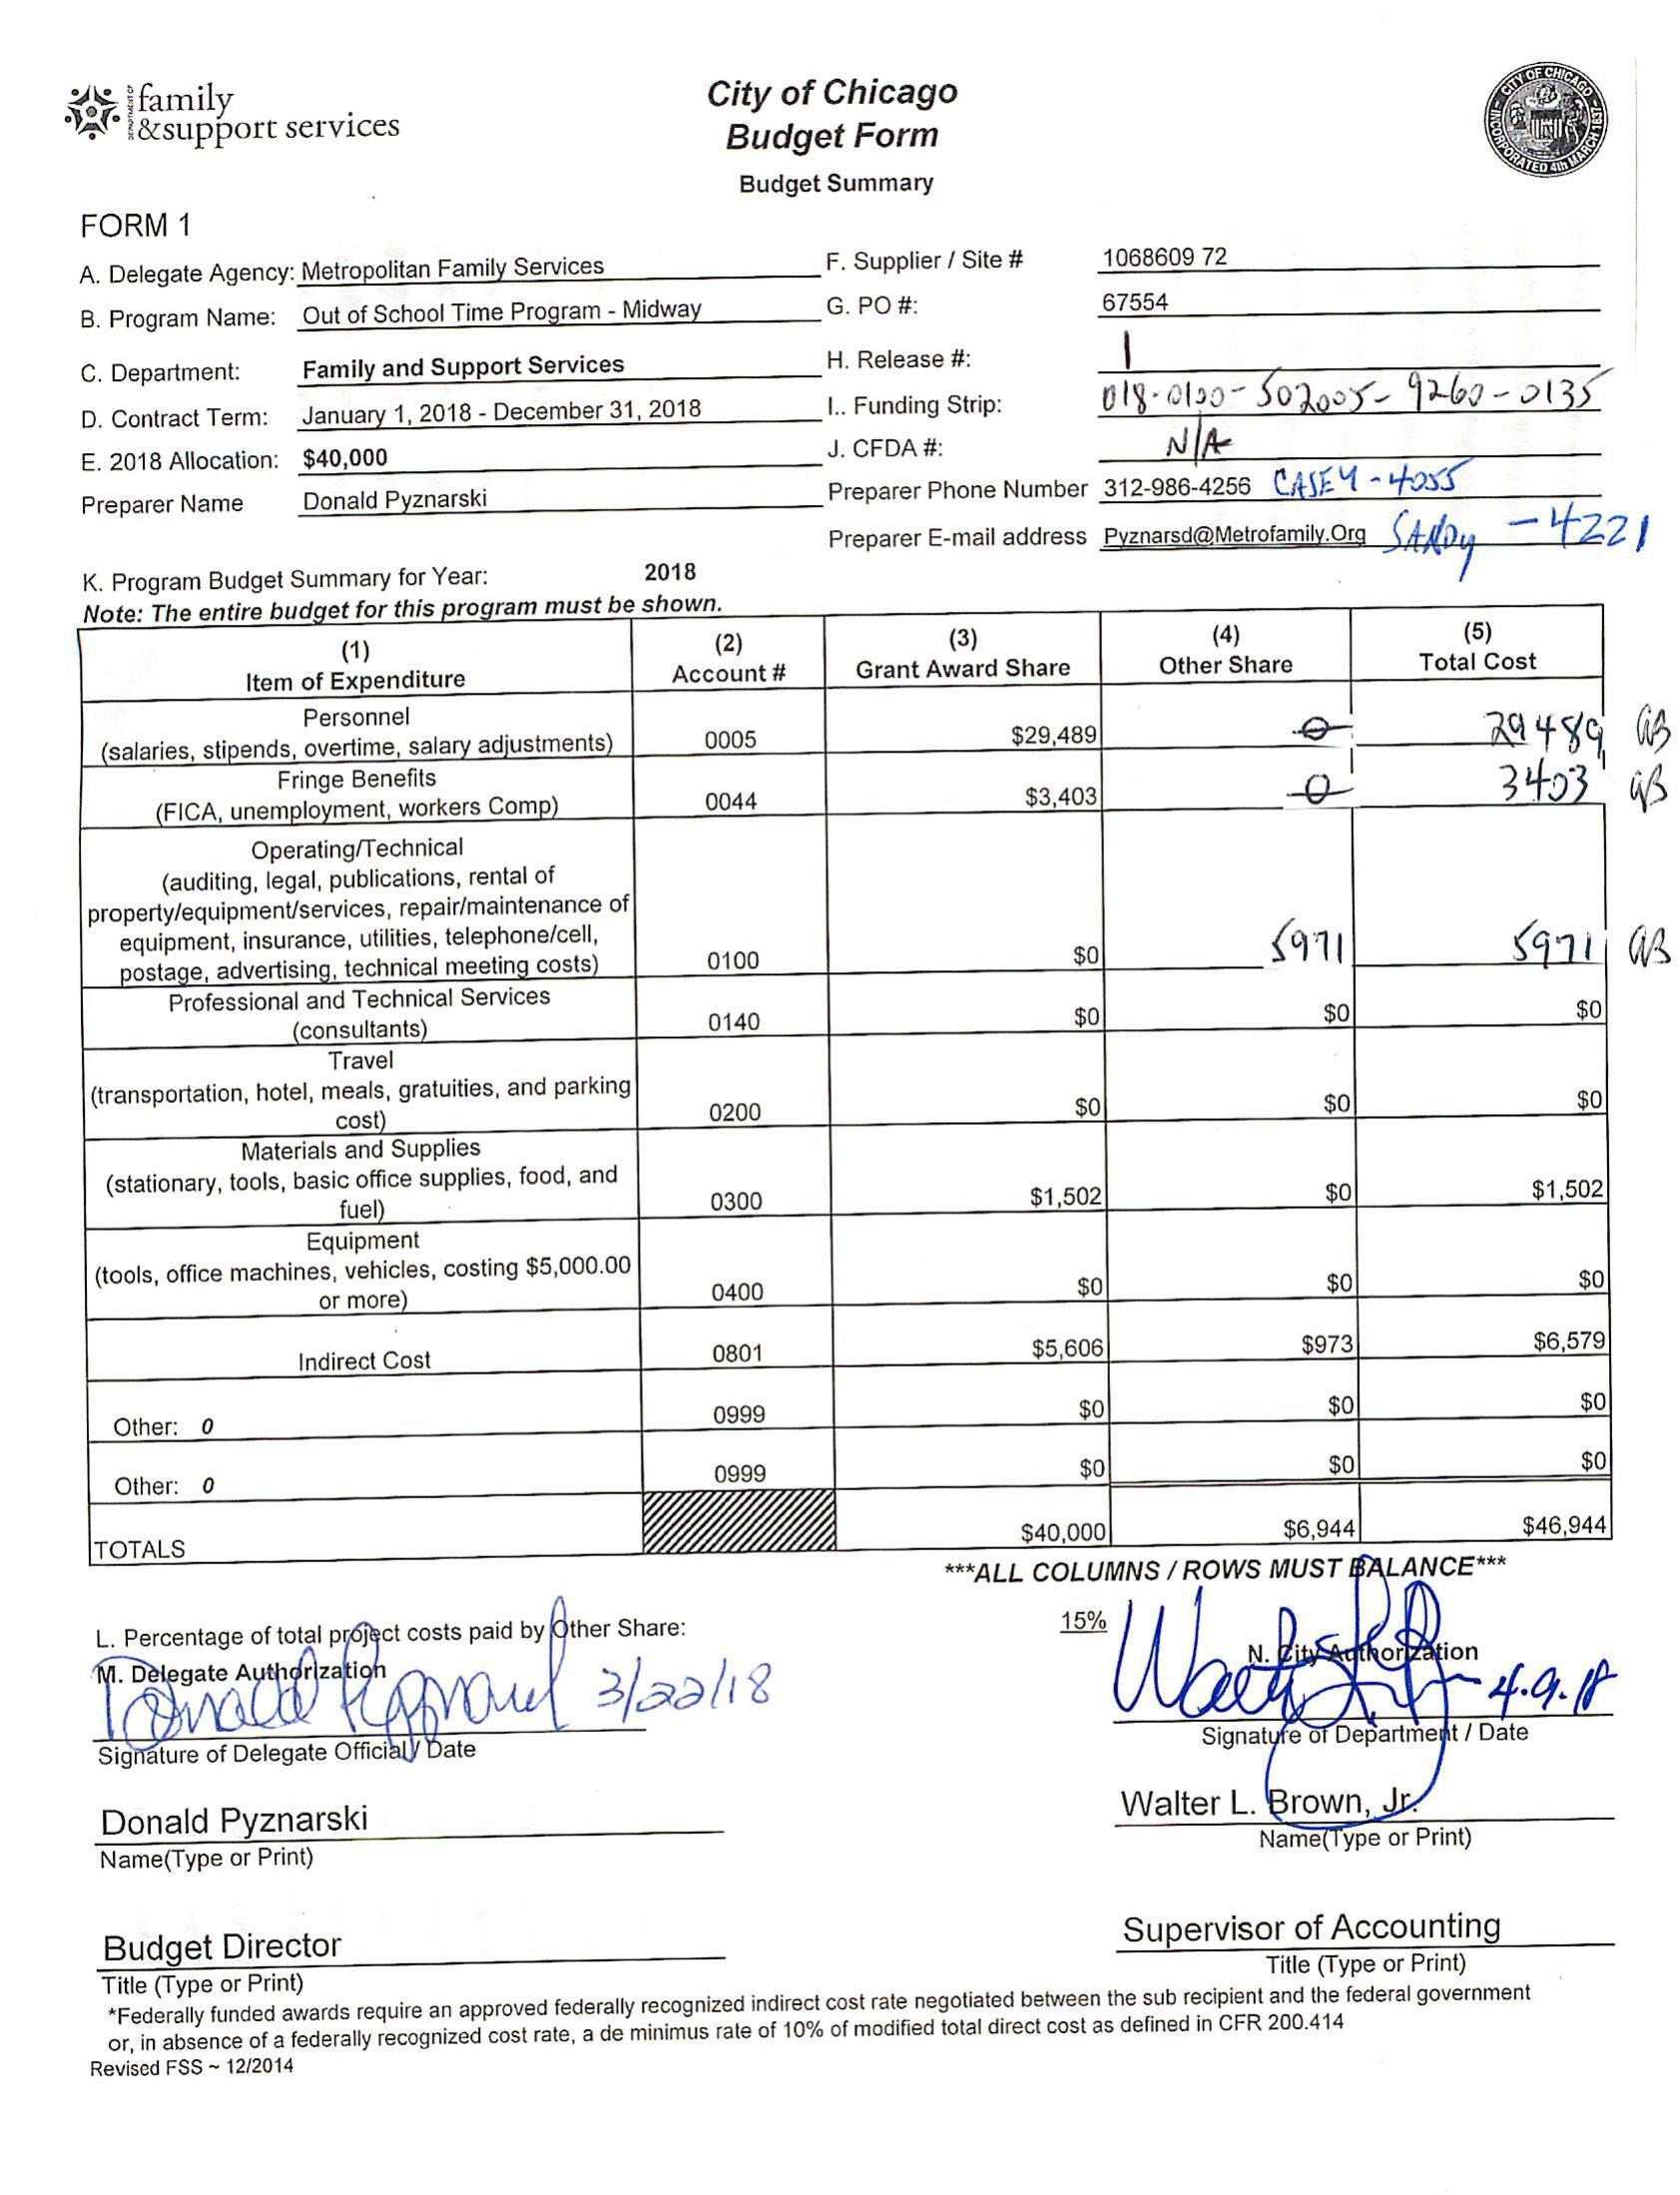 DEPARTMENT OF
family
&support services
City of Chicago
Budget Form
Budget Summary
CITY OF CHICAGO
INCORPORATED 4th MARCH 1837
FORM 1
A. Delegate Agency: Metropolitan Family Services
F. Supplier / Site # 1068609 72
B. Program Name: Out of School Time Program - Midway
G. PO #: 67554
C. Department: Family and Support Services
H. Release #: 1
D. Contract Term: January 1, 2018 - December 31, 2018
I.. Funding Strip: 018-0100-502005-9260-0135
E. 2018 Allocation: $40,000
J. CFDA #: N/A
Preparer Name Donald Pyznarski
Preparer Phone Number 312-986-4256 CASEY-4055
Preparer E-mail address Pyznarsd@Metrofamily.Org SANDY -4221
K. Program Budget Summary for Year: 2018
Note: The entire budget for this program must be shown.
(1) (2) (3) (4) (5)
Item of Expenditure Account # Grant Award Share Other Share Total Cost
Personnel
(salaries, stipends, overtime, salary adjustments) 0005 $29,489 0 29489
Fringe Benefits
(FICA, unemployment, workers Comp) 0044 $3,403 0 3403
Operating/Technical
(auditing, legal, publications, rental of
property/equipment/services, repair/maintenance of
equipment, insurance, utilities, telephone/cell,
postage, advertising, technical meeting costs) 0100 $0 5971 5971
Professional and Technical Services
(consultants) 0140 $0 $0 $0
Travel
(transportation, hotel, meals, gratuities, and parking
cost) 0200 $0 $0 $0
Materials and Supplies
(stationary, tools, basic office supplies, food, and
fuel) 0300 $1,502 $0 $1,502
Equipment
(tools, office machines, vehicles, costing $5,000.00
or more) 0400 $0 $0 $0
Indirect Cost 0801 $5,606 $973 $6,579
Other: 0 0999 $0 $0 $0
Other: 0 0999 $0 $0 $0
TOTALS $40,000 $6,944 $46,944
***ALL COLUMNS / ROWS MUST BALANCE***
L. Percentage of total project costs paid by Other Share: 15%
M. Delegate Authorization
N. City Authorization
Donald Pyznarski 3/22/18
4.9.18
Signature of Delegate Official / Date
Signature of Department / Date
Donald Pyznarski
Walter L. Brown, Jr.
Name(Type or Print)
Name(Type or Print)
Budget Director
Supervisor of Accounting
Title (Type or Print)
Title (Type or Print)
*Federally funded awards require an approved federally recognized indirect cost rate negotiated between the sub recipient and the federal government
or, in absence of a federally recognized cost rate, a de minimus rate of 10% of modified total direct cost as defined in CFR 200.414
Revised FSS ~ 12/2014